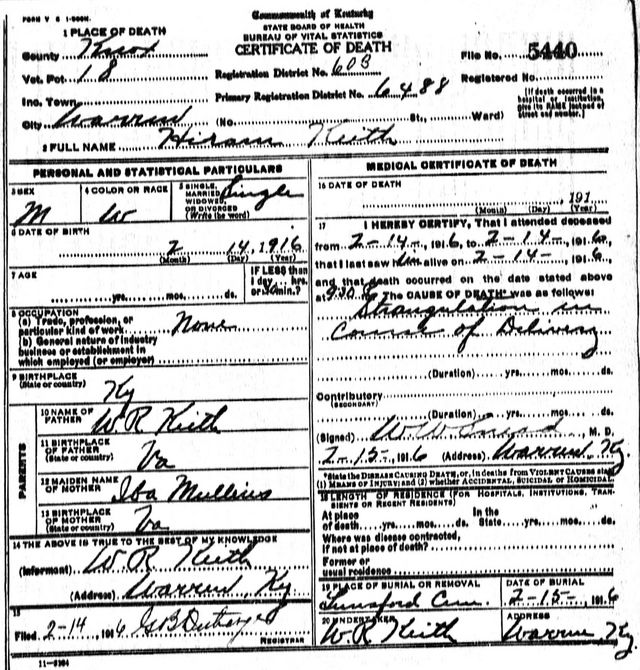 FORM V S 1-500M.
Commonwealth of Kentucky
STATE BOARD OF HEALTH
BUREAU OF VITAL STATISTICS
CERTIFICATE OF DEATH
1 PLACE OF DEATH
County Knox
Vot. Pct 18
Inc. Town
City Warren (No. St., Ward)
Registration District No. 603
Primary Registration District No. 6488
File No. 5440
Registered No.
[If death occurred in a hospital or institution, give its NAME instead of street and number.]
2 FULL NAME Hiram Keith
PERSONAL AND STATISTICAL PARTICULARS
3 SEX
M
4 COLOR OR RACE
W
5 SINGLE, MARRIED, WIDOWED, OR DIVORCED
(Write the word)
Single
6 DATE OF BIRTH
2 14, 1916
(Month) (Day) (Year)
7 AGE
yrs. mos. ds.
IF LESS than
1 day, hrs.
or min.?
8 OCCUPATION
(a) Trade, profession, or
particular kind of work None
(b) General nature of industry
business or establishment in
which employed (or employer)
9 BIRTHPLACE
(State or country)
Ky
PARENTS
10 NAME OF
FATHER
W R Keith
11 BIRTHPLACE
OF FATHER
(State or country)
Va
12 MAIDEN NAME
OF MOTHER
Iba Mullins
13 BIRTHPLACE
OF MOTHER
(State or country)
Va
14 THE ABOVE IS TRUE TO THE BEST OF MY KNOWLEDGE
(Informant) W R Keith
(Address) Warren, Ky
15
Filed 2-14, 1916 G B
REGISTRAR
11-3184
MEDICAL CERTIFICATE OF DEATH
16 DATE OF DEATH
191
(Month) (Day) (Year)
17 I HEREBY CERTIFY, That I attended deceased
from 2-14-, 1916, to 2-14-, 1916,
that I last saw him alive on 2-14-, 1916
and that death occurred on the date stated above
at 9:30 The CAUSE OF DEATH* was as follows:
Strangulation in
Course of Delivery
(Duration) yrs. mos. ds.
Contributory
(SECONDARY)
(Duration) yrs. mos. ds.
(Signed) W W, M. D.
2-15-, 1916 (Address) Warren Ky.
*State the DISEASE CAUSING DEATH, or, in deaths from VIOLENT CAUSES state
(1) MEANS OF INJURY; and (2) whether ACCIDENTAL, SUICIDAL or HOMICIDAL.
18 LENGTH OF RESIDENCE (FOR HOSPITALS, INSTITUTIONS, TRANSIENTS OR RECENT RESIDENTS)
At place
of death yrs. mos. ds.
In the
State yrs. mos. ds.
Where was disease contracted,
if not at place of death?
Former or
usual residence
19 PLACE OF BURIAL OR REMOVAL
Cem.
DATE OF BURIAL
2-15-, 1916
20 UNDERTAKER
W R Keith
ADDRESS
Warren Ky